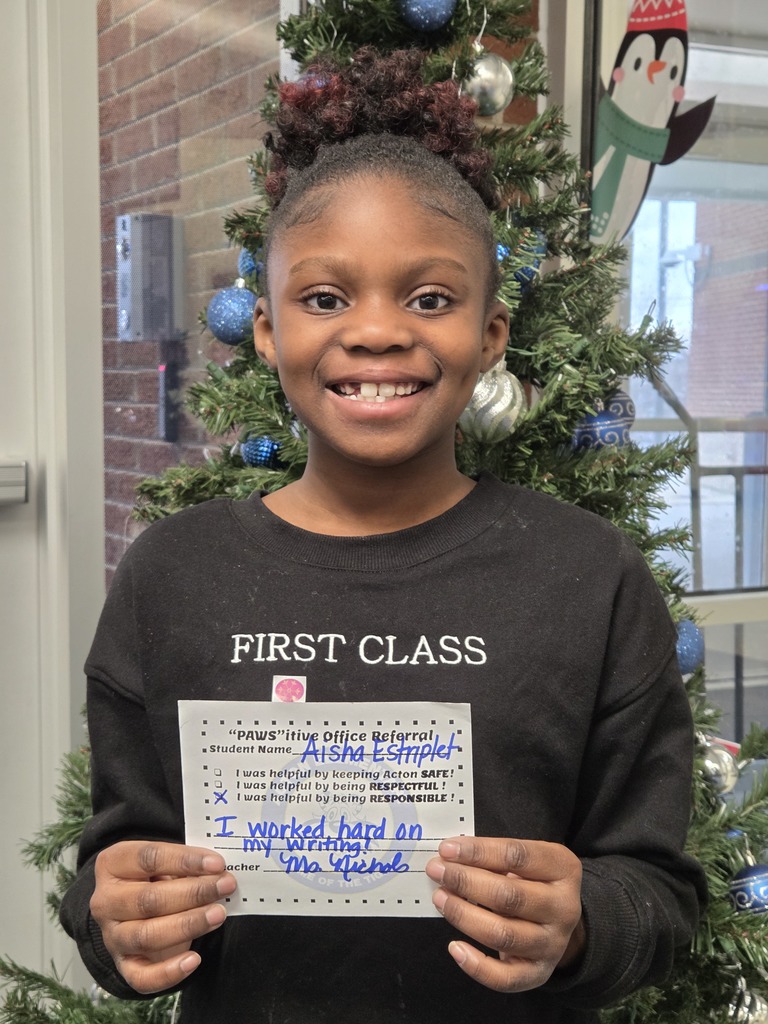 FIRST CLASS
"PAWS"itive Office Referral
Student Name Aisha Estriplet
I was helpful by keeping Acton SAFE!
I was helpful by being RESPECTFUL!
X I was helpful by being RESPONSIBLE!
I worked hard on
my writing!
acher Ms. Nichols
OF THE